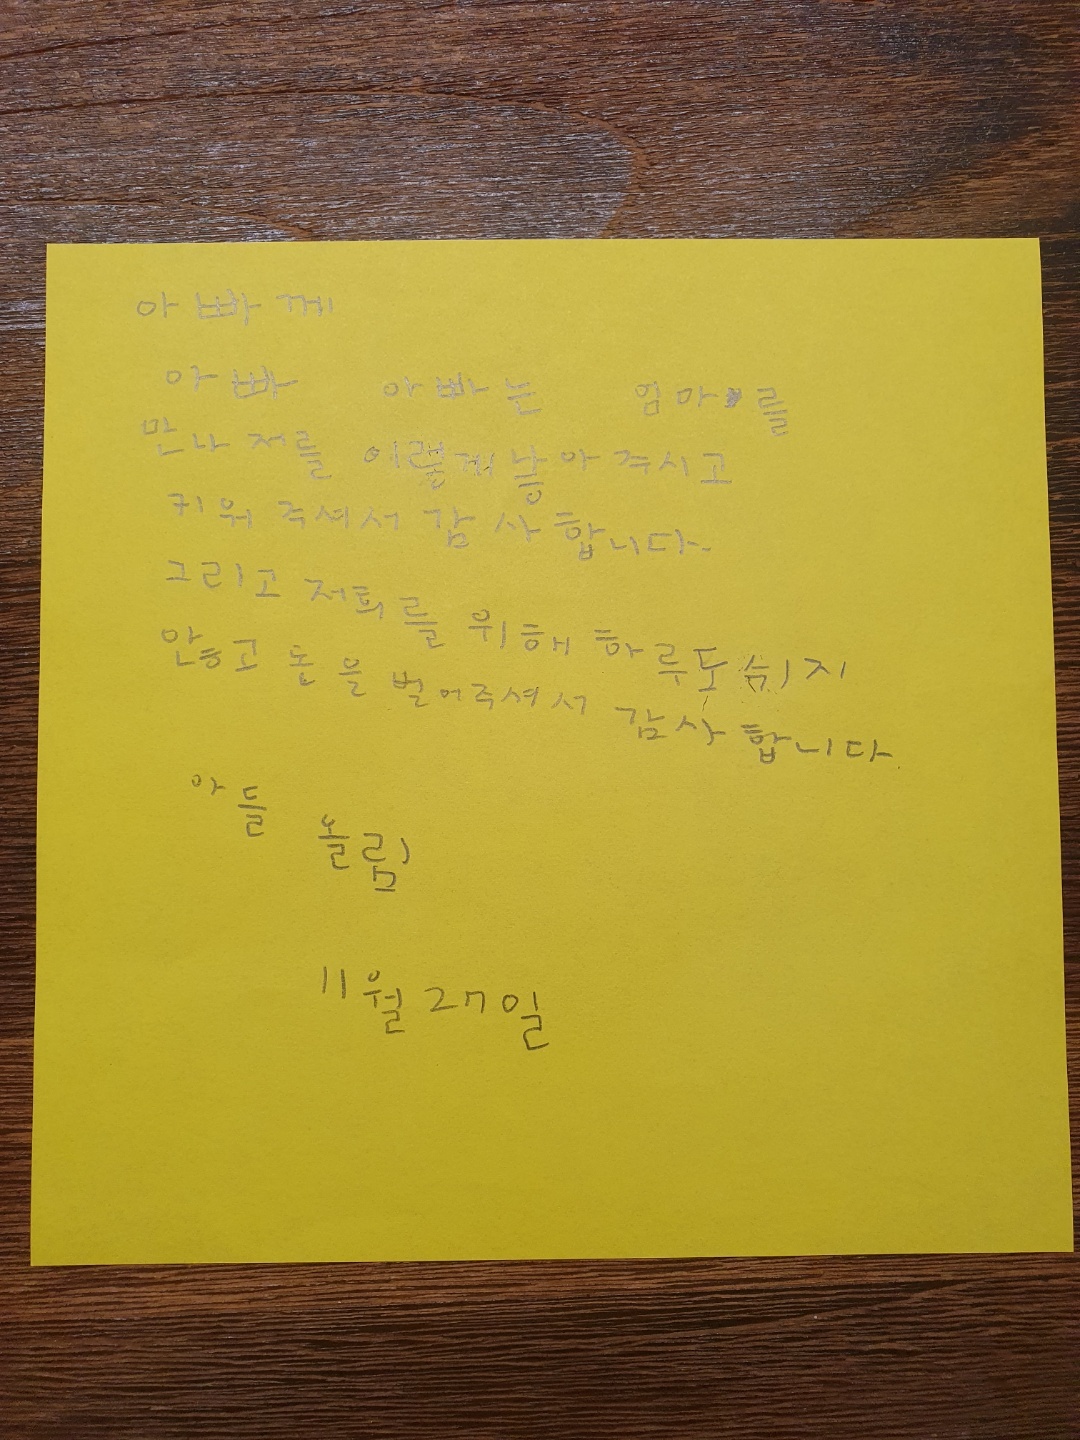 아빠께
아빠 아빠는 엄마를
만나 저를 이렇게 낳아 주시고
키워 주셔서 감사합니다.
그리고 저희를 위해 하루도 쉬지
안코 돈을 벌어주셔서 감사합니다
아들 올림
11월 27일